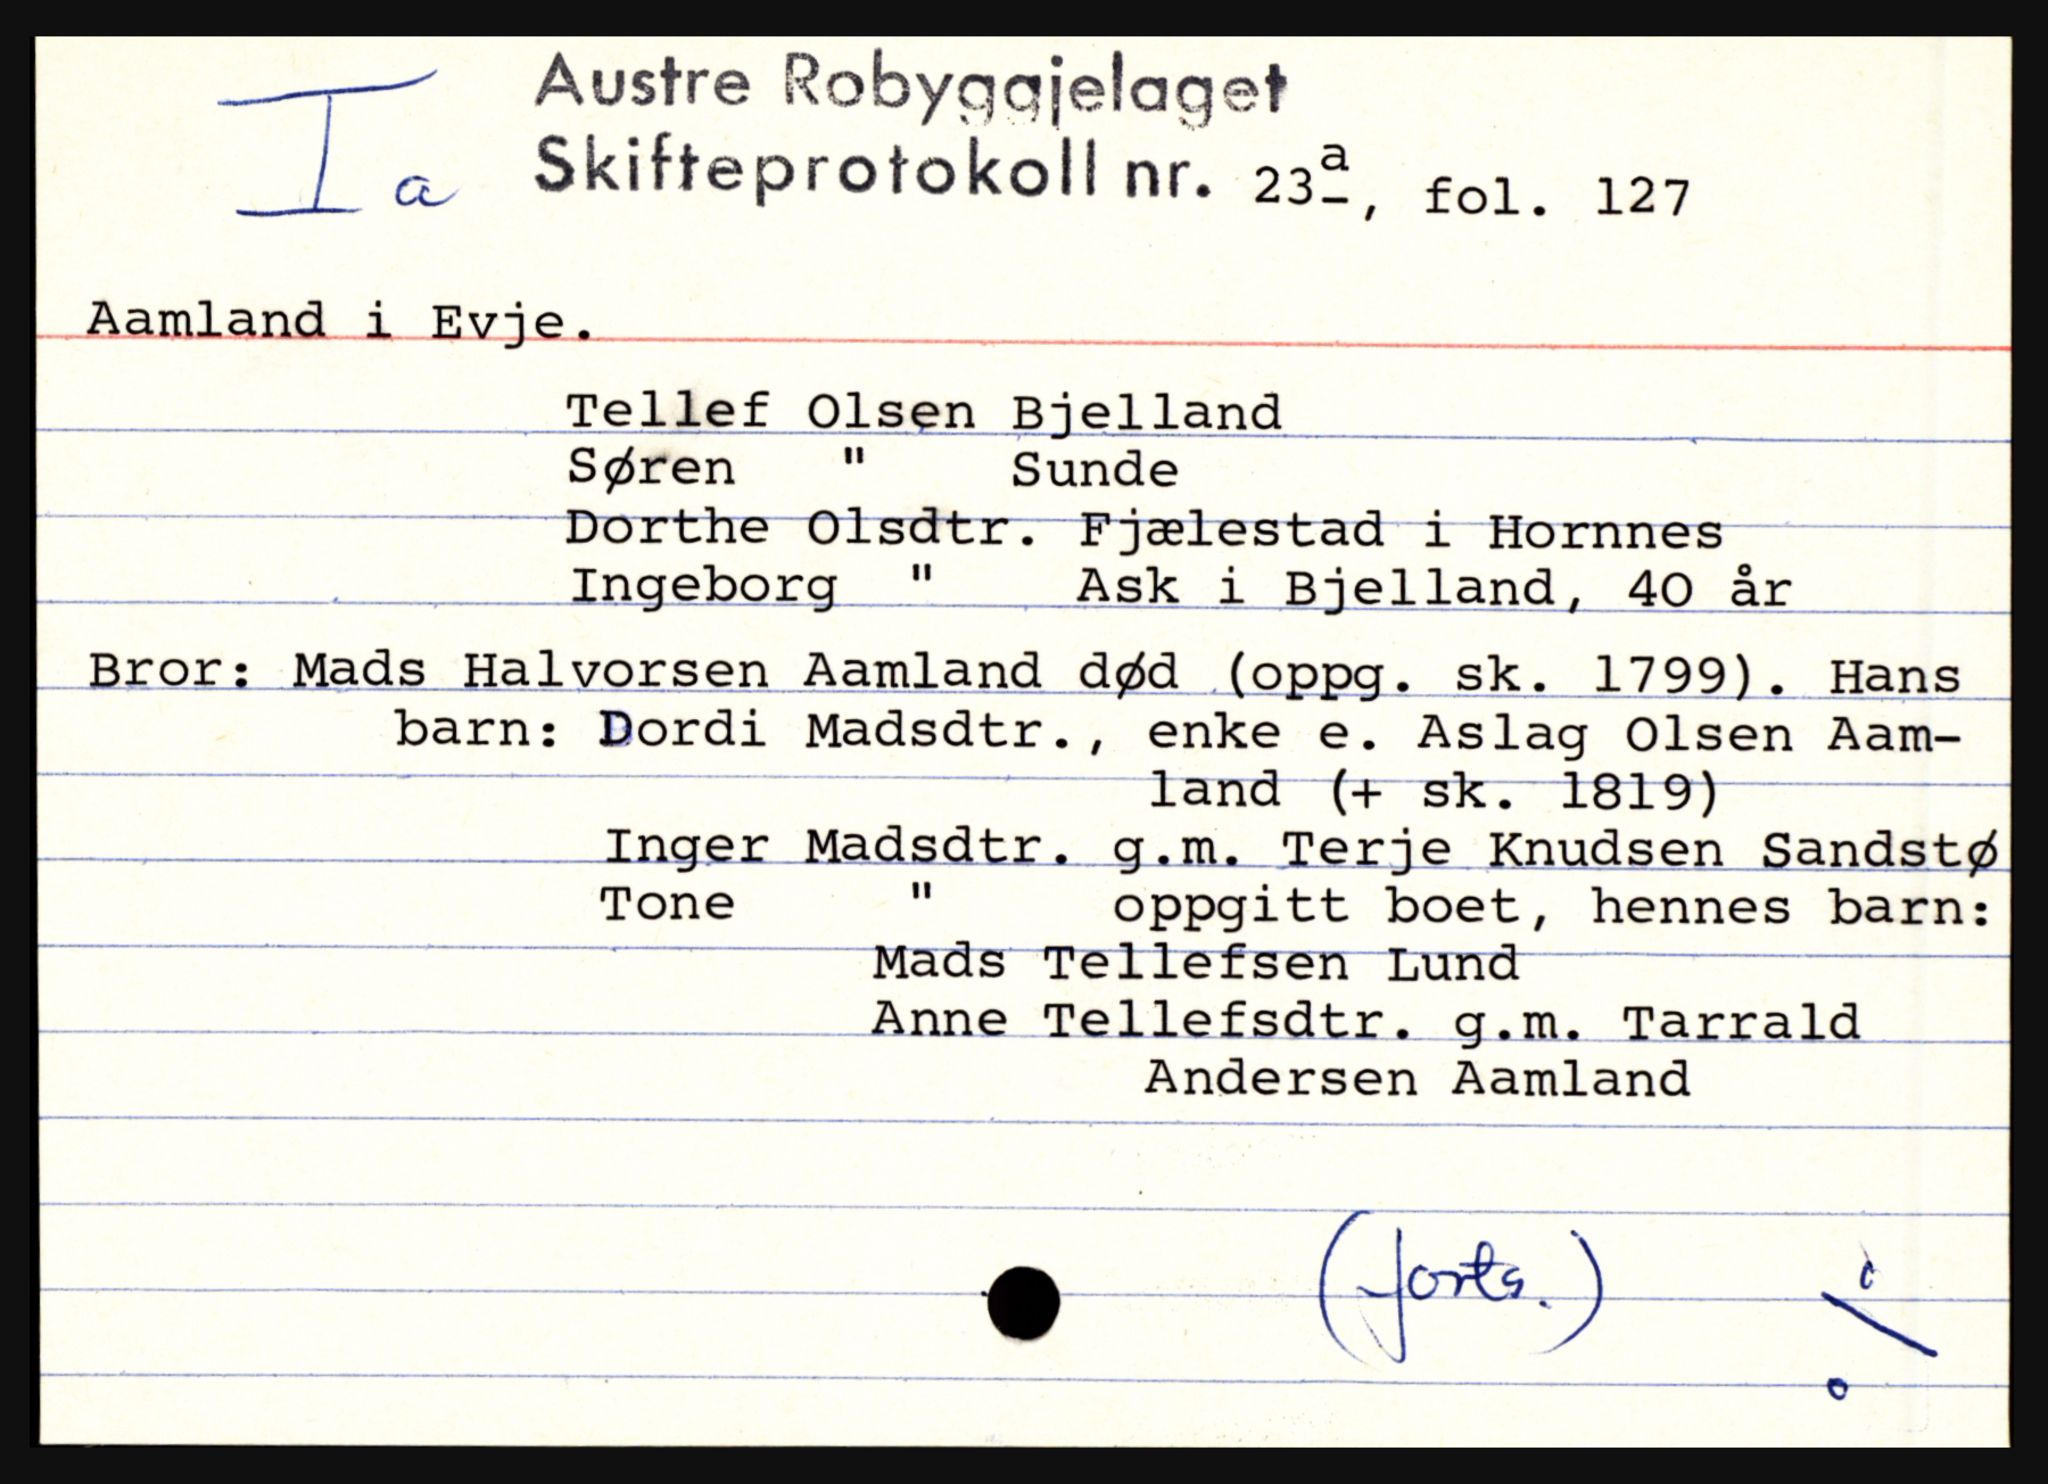 I a
Austre Robyggjelaget
Skifteprotokoll nr. 23a, fol. 127
Aamland i Evje.
Tellef Olsen Bjelland
Søren " Sunde
Dorthe Olsdtr. Fjælestad i Hornnes
Ingeborg " Ask i Bjelland, 40 år
Bror: Mads Halvorsen Aamland død (oppg. sk. 1799). Hans
barn: Dordi Madsdtr., enke e. Aslag Olsen Aam-
land (+ sk. 1819)
Inger Madsdtr. g.m. Terje Knudsen Sandstø
Tone " oppgitt boet, hennes barn:
Mads Tellefsen Lund
Anne Tellefsdtr. g.m. Tarrald
Andersen Aamland
(forts.)